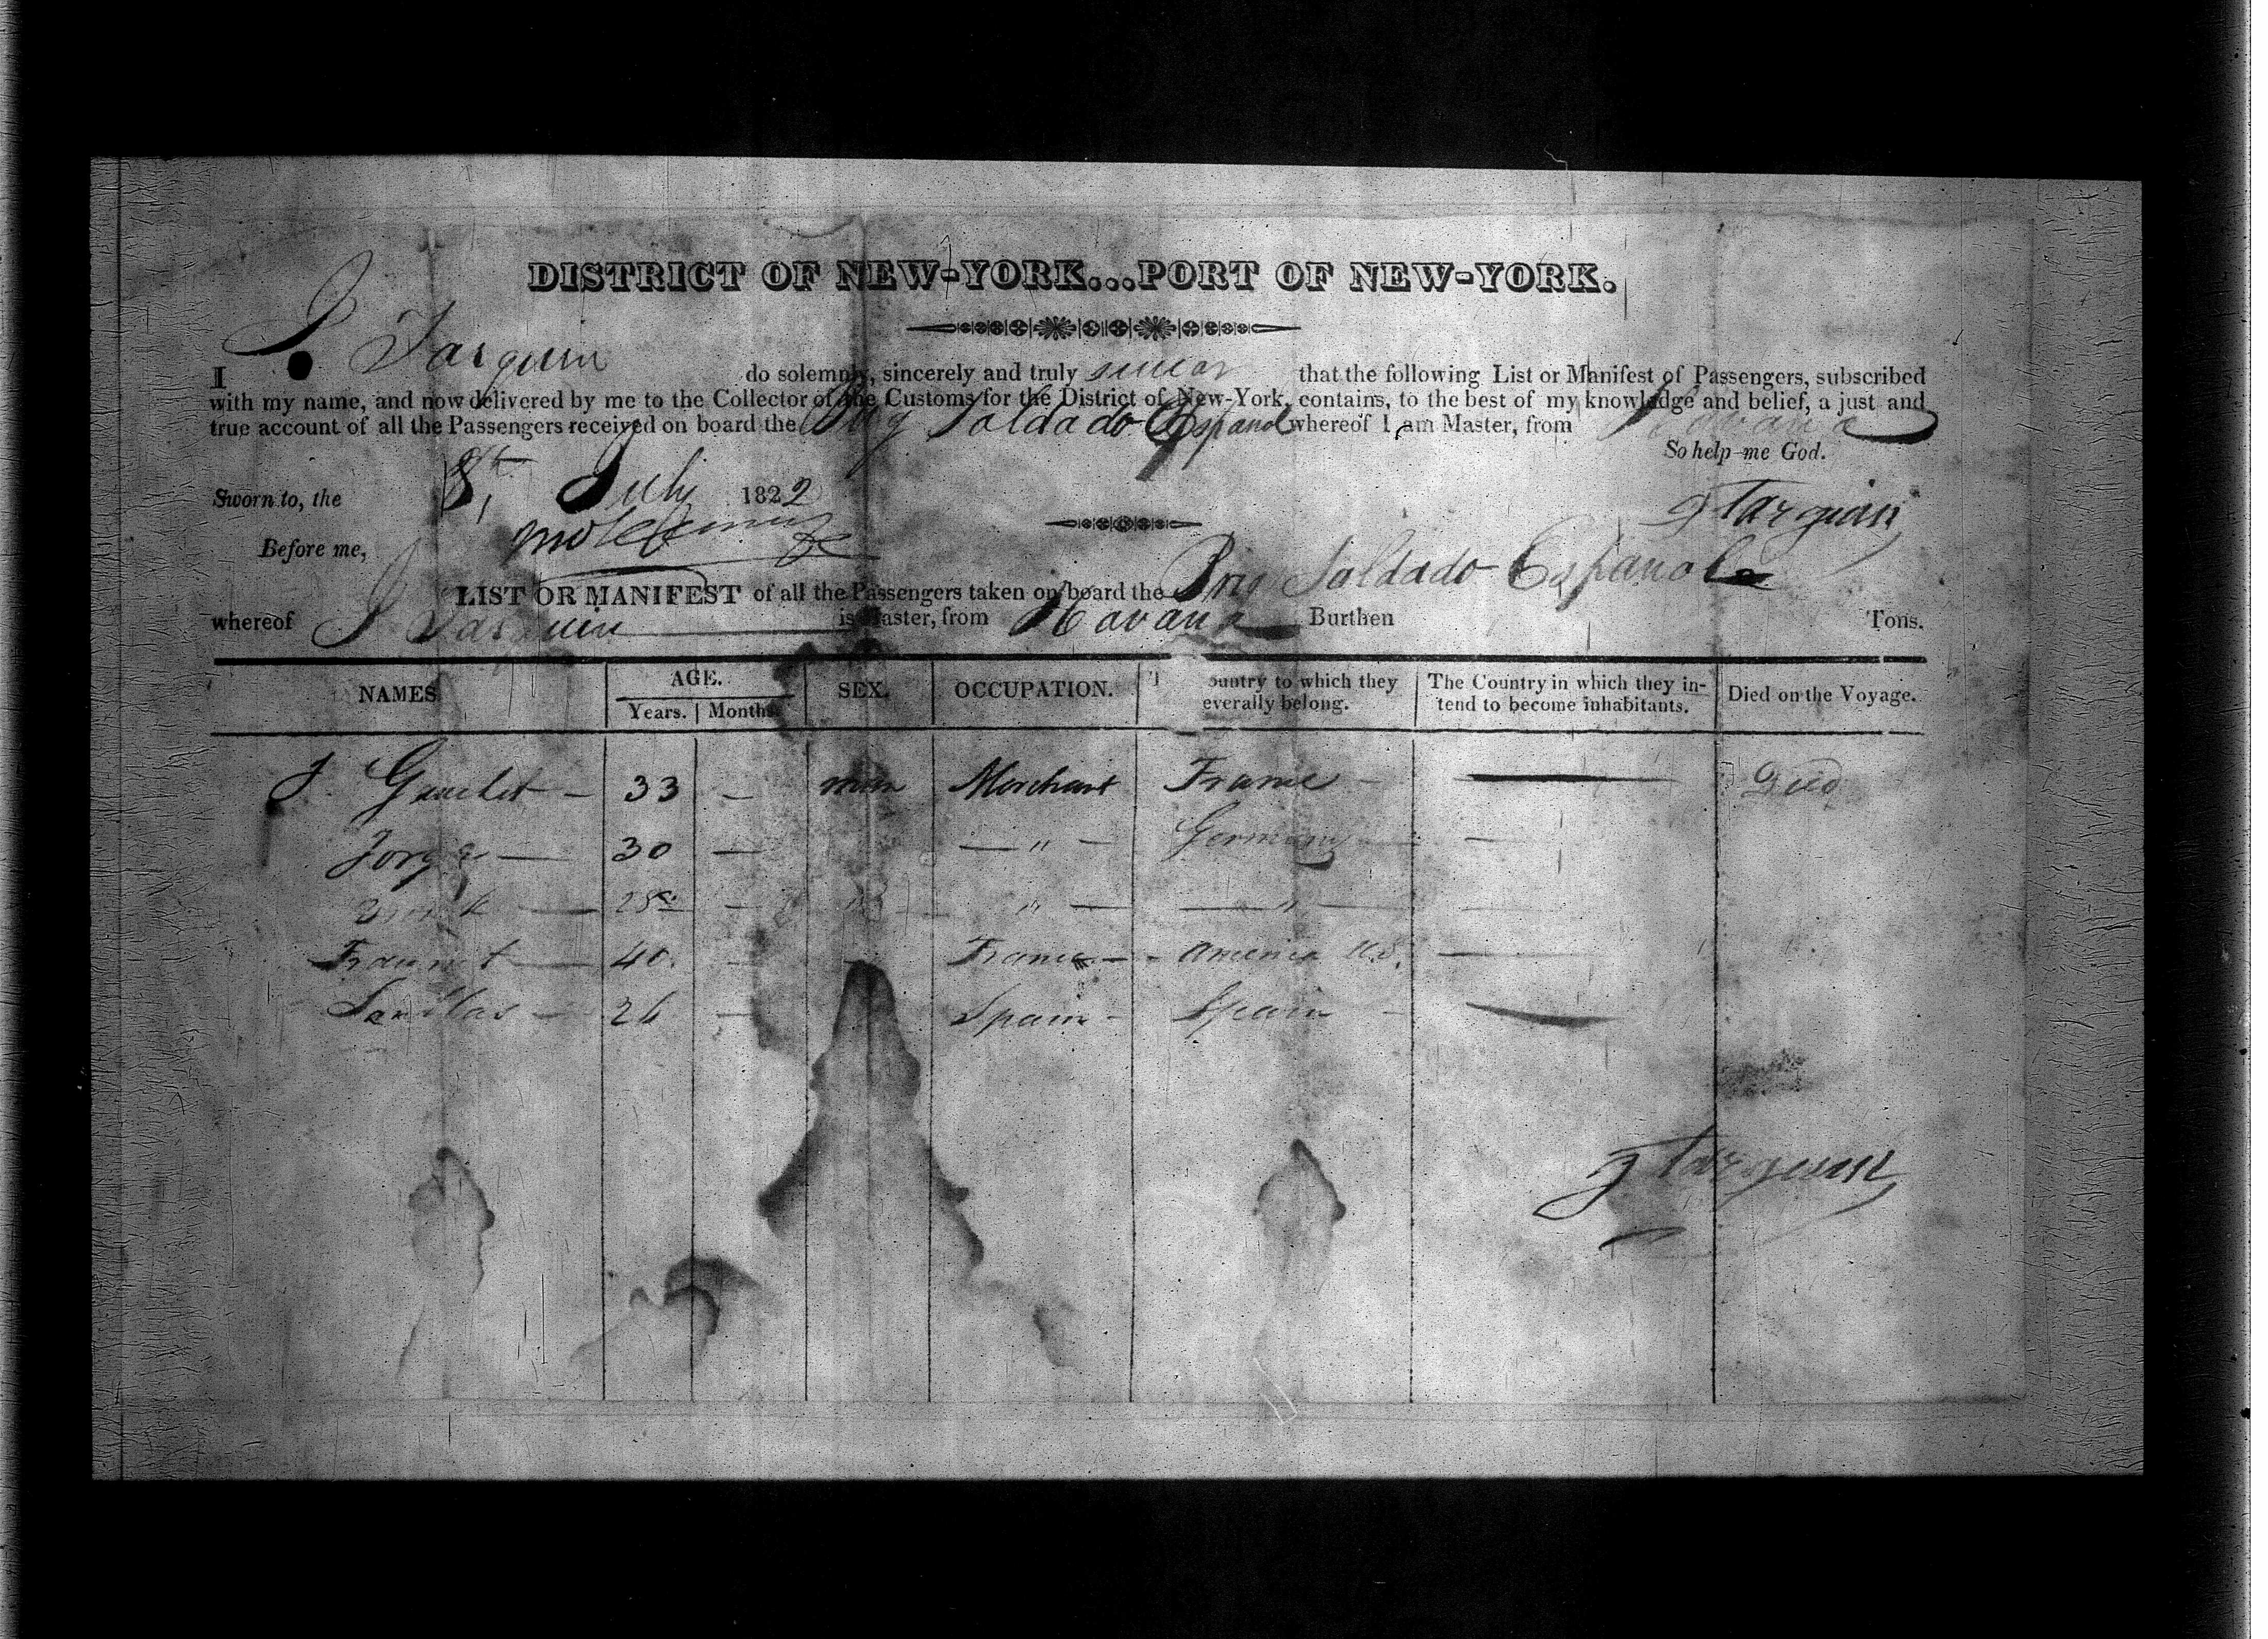 DISTRICT OF NEW-YORK...PORT OF NEW-YORK.
I J. Tarquin do solemnly, sincerely and truly swear that the following List or Manifest of Passengers, subscribed
with my name, and now delivered by me to the Collector of the Customs for the District of New-York, contains, to the best of my knowledge and belief, a just and
true account of all the Passengers received on board the Brig Soldado Español whereof I am Master, from Havana
So help me God.
Sworn to, the 8th July 1822
J Tarquin
Before me,
LIST OR MANIFEST of all the Passengers taken on board the Brig Soldado Español
whereof J Tarquin is Master, from Havana Burthen Tons.
NAMES AGE. SEX. OCCUPATION. T ountry to which they everally belong. The Country in which they intend to become inhabitants. Died on the Voyage.
Years. Months
J. 33 — man Merchant France — Died
30 — — " — Germany —
— 28 — " — — " —
— 40. — France — America U.S. —
— 26 — Spain — Spain —
J Tarquin